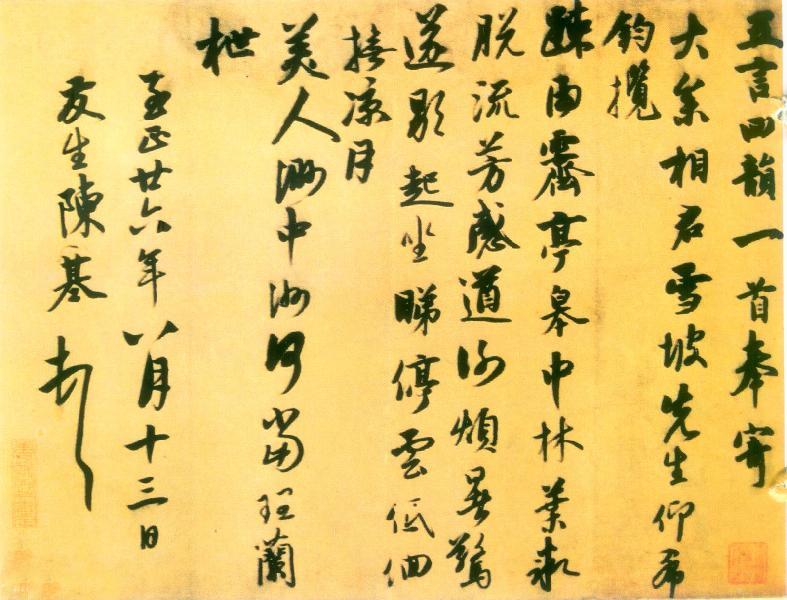 五言四韻一首奉寄
大參相君雪坡先生仰希
鈞攬
踈雨霽亭皋中林葉
脫流芳感遒謝煩暑驚
遂歇起坐睇停雲低佪
涼月
美人渺中洲何當理蘭
枻
至正廿六年八月十三日
友生陳基